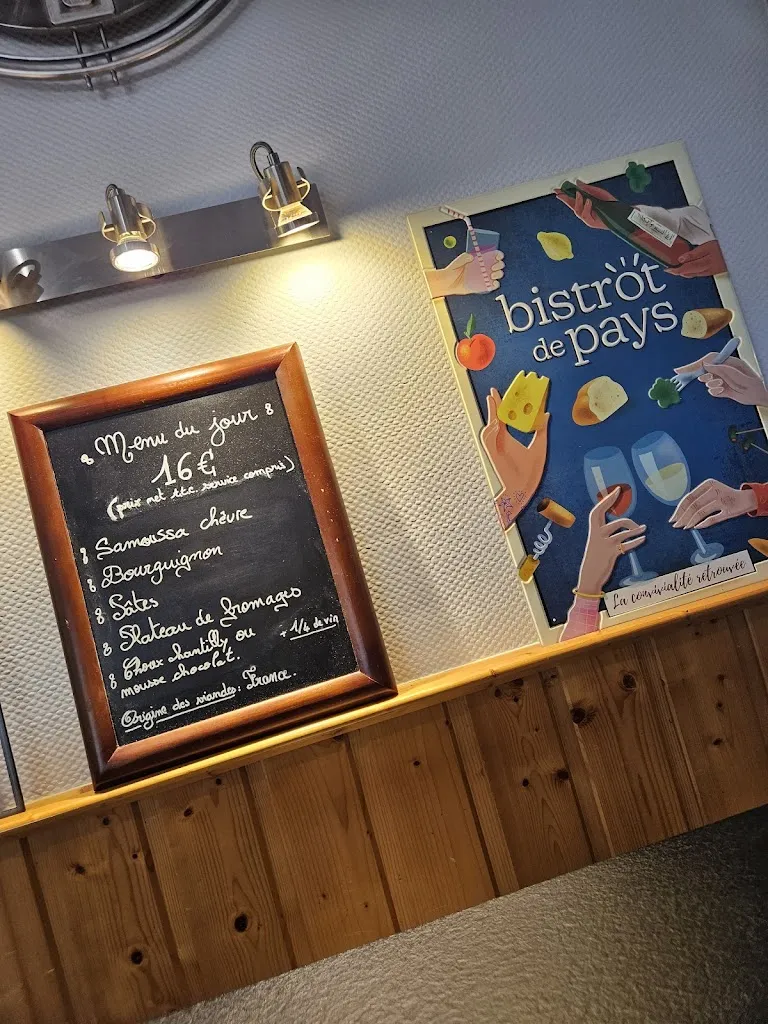 Menu du jour
16€
(prix net t.t.c. service compris)
Samoussa chèvre
Bourguignon
Pâtes
Plateau de fromages
Choux chantilly ou
mousse chocolat.
+ 1/4 de vin
Origine des viandes: France.
bistròt
de pays
La convivialité retrouvée